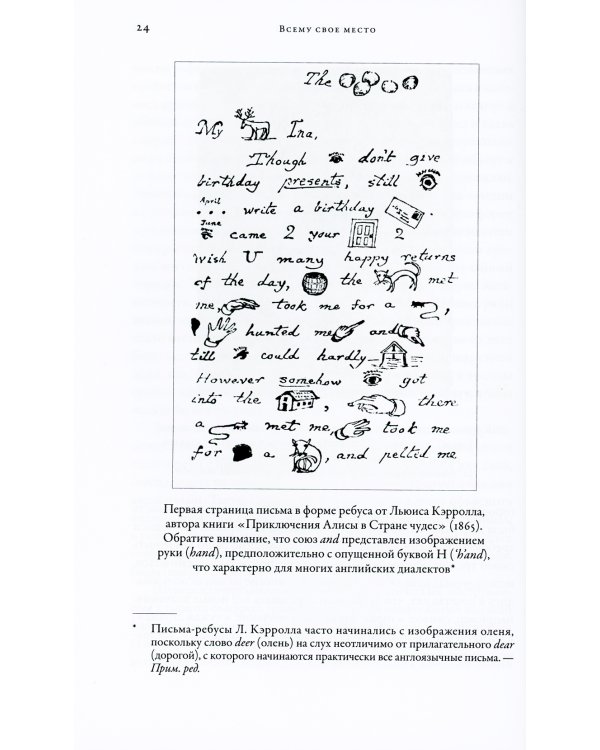 24 Всему свое место
The
My Ina,
Though don't give
birthday presents, still
April
... write a birthday
June
came 2 your 2
wish U many happy returns
of the day, the met
me, took me for a ,
hunted me and
till could hardly
However somehow got
into the , there
a met me, took me
for a , and pelted me
Первая страница письма в форме ребуса от Льюиса Кэрролла,
автора книги «Приключения Алисы в Стране чудес» (1865).
Обратите внимание, что союз and представлен изображением
руки (hand), предположительно с опущенной буквой H (’h’and),
что характерно для многих английских диалектов*
* Письма-ребусы Л. Кэрролла часто начинались с изображения оленя,
поскольку слово deer (олень) на слух неотличимо от прилагательного dear
(дорогой), с которого начинаются практически все англоязычные письма. —
Прим. ред.